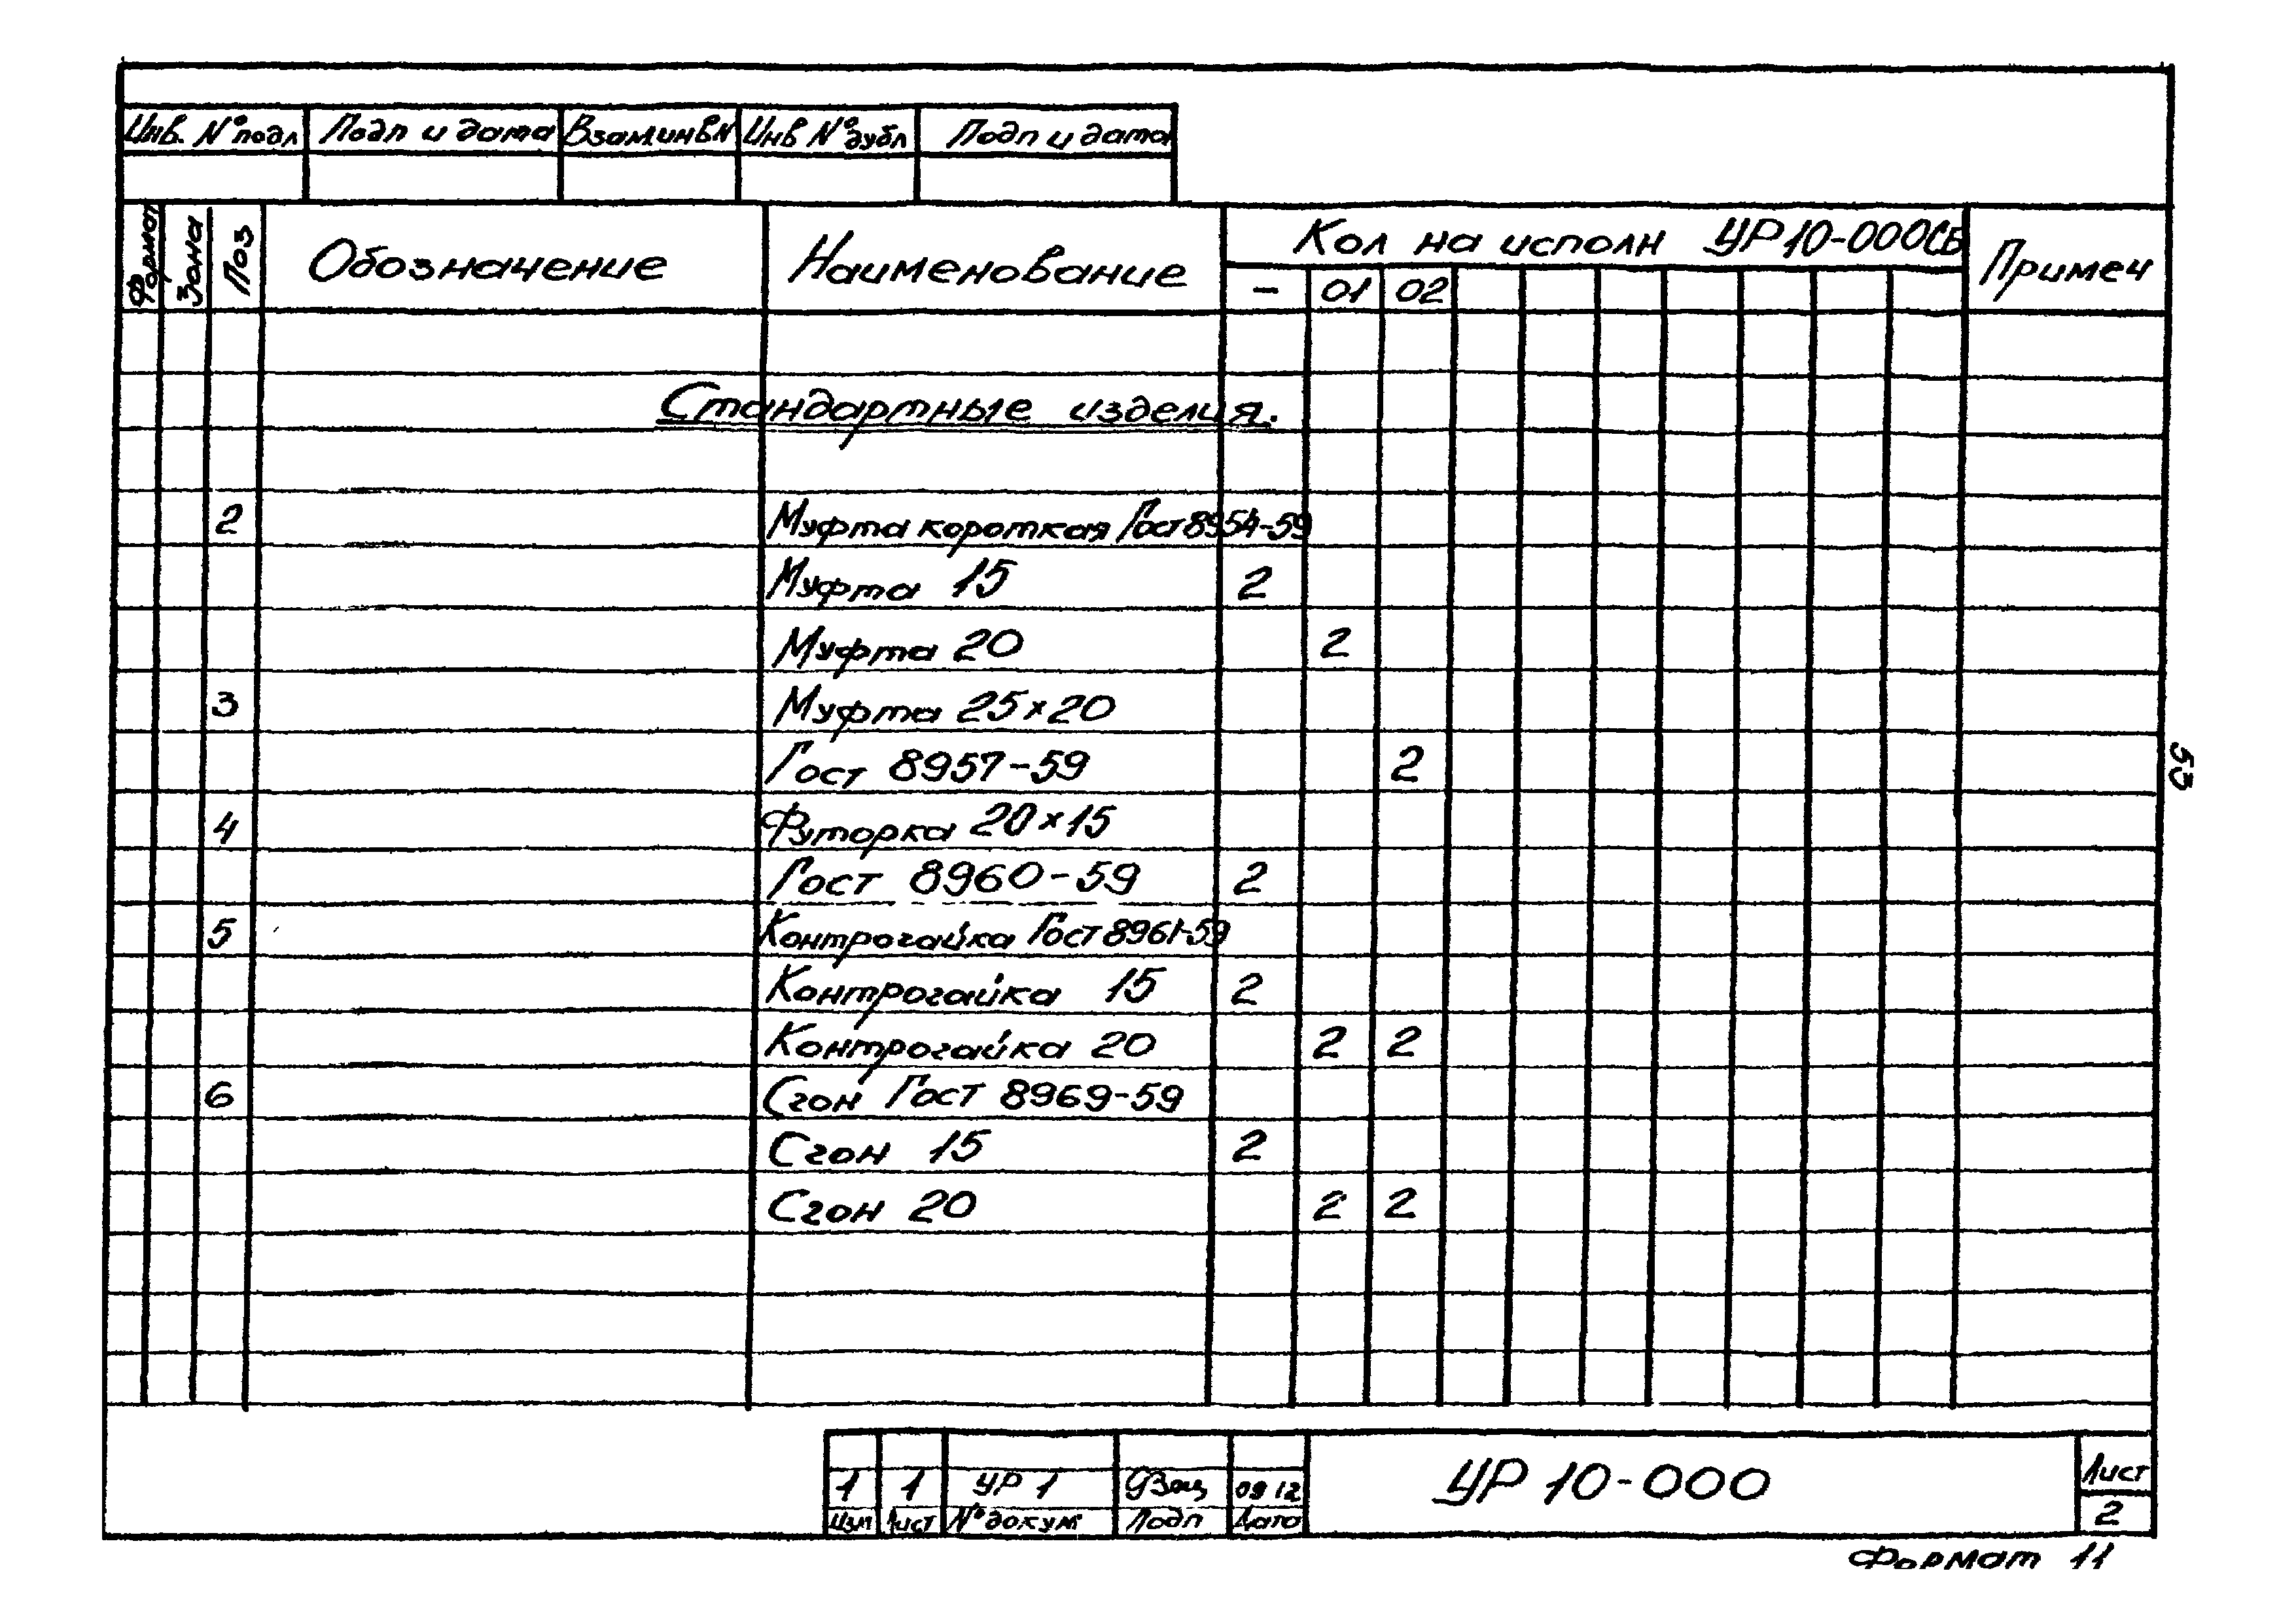 Инв. № подл Подп и дата Взам.инв№ Инв № дубл Подп и дата
Формат Зона Поз Обозначение Наименование Кол на исполн УР10-000СБ Примеч
- 01 02
Стандартные изделия.
2 Муфта короткая Гост 8954-59
Муфта 15 2
Муфта 20 2
3 Муфта 25×20
Гост 8957-59 2
4 Футорка 20×15
Гост 8960-59 2
5 Контрогайка Гост 8961-59
Контрогайка 15 2
Контрогайка 20 2 2
6 Сгон Гост 8969-59
Сгон 15 2
Сгон 20 2 2
53
1 1 УР 1 09 12
Изм Лист № докум Подп Дата
УР 10-000
Лист
2
Формат 11